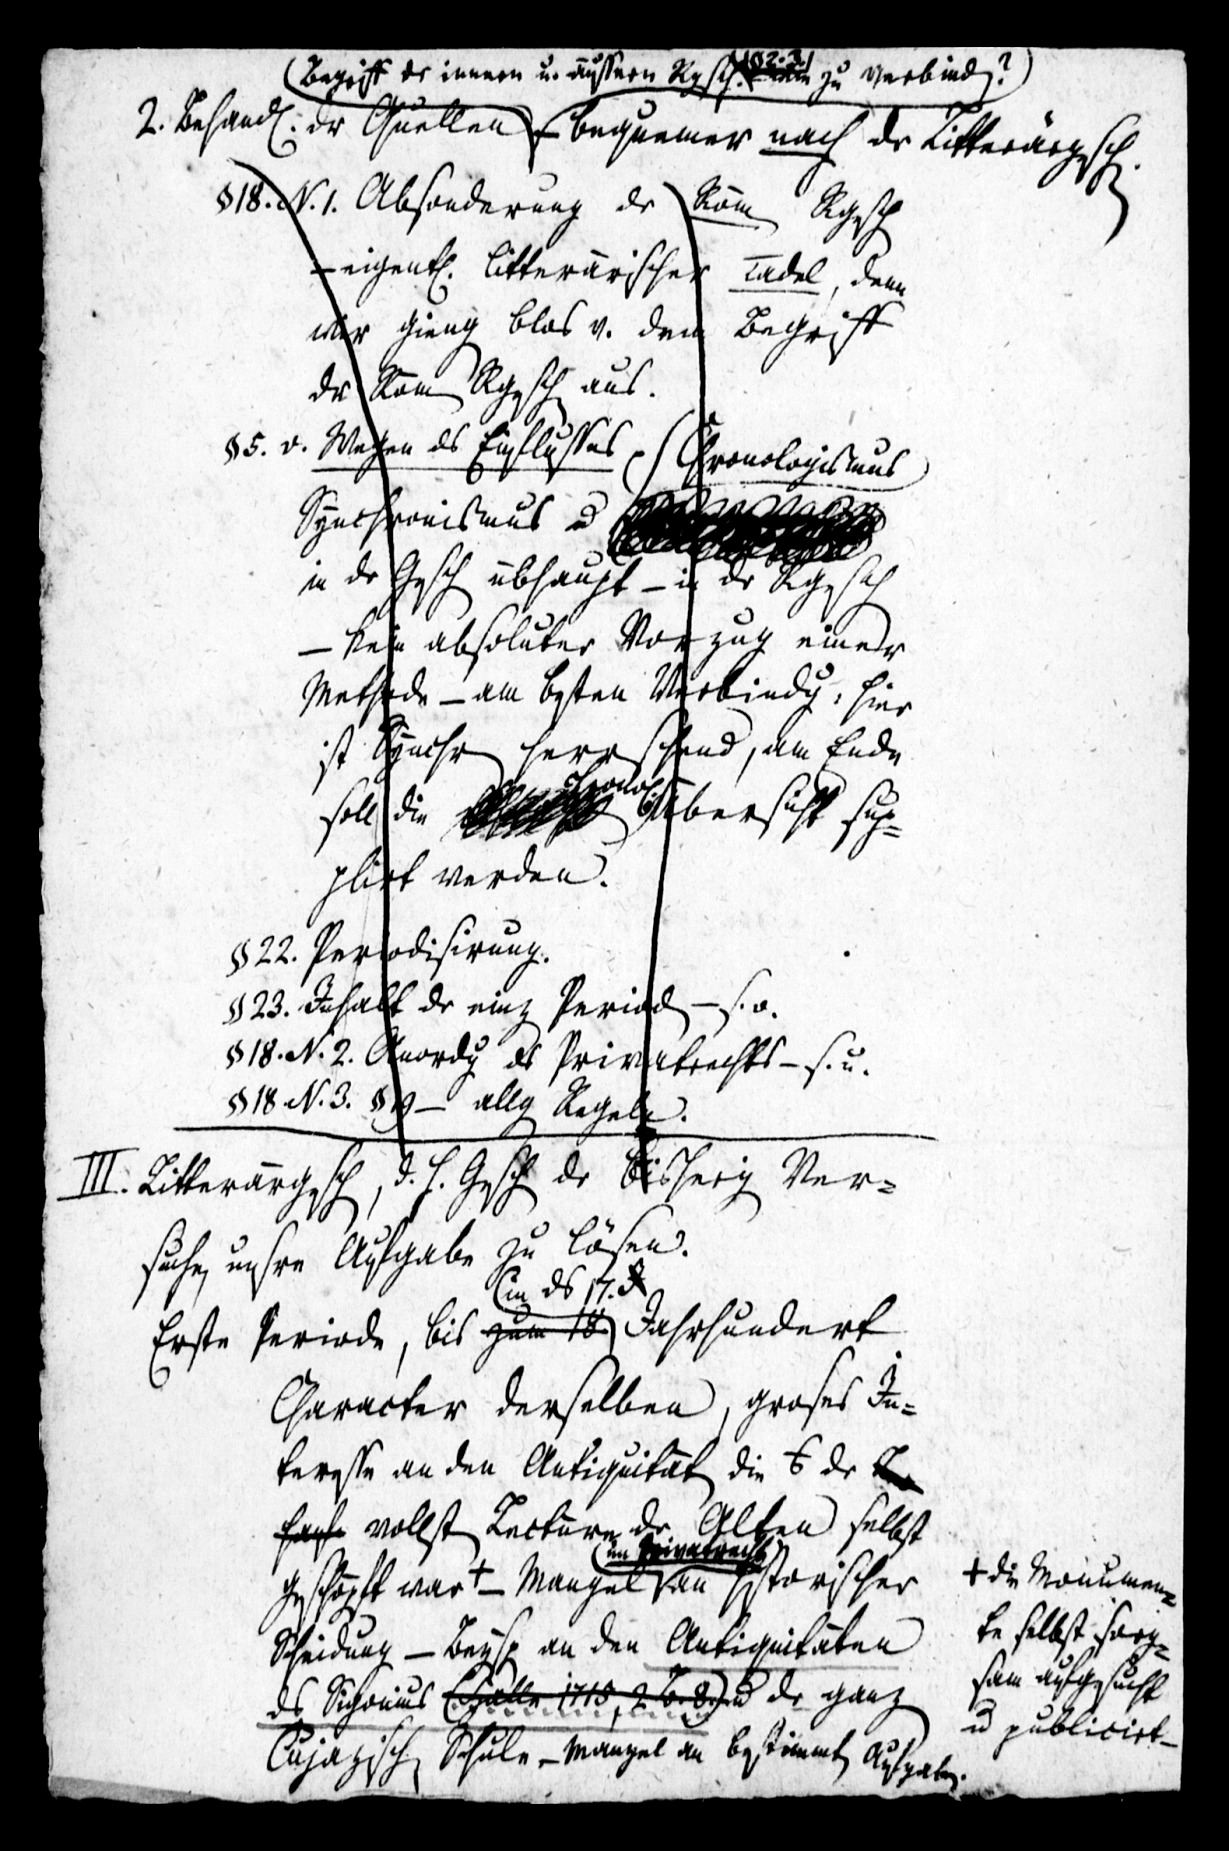 (Begriff der innern u. äussern Rgsch. zu verbinden?)
2. Behandl. der Quellen – bequemer nach der Litterärgesch.
§ 18. N. 1. Absonderung der Röm Rgesch
– eigentl. litterärischer Tadel, denn
wir gieng blos v. dem Begriff
der Röm Rgesch aus.
§ 5. v. Wegen des Einflusses (Chronologismus)
Synchronismus u
in der Gesch übhaupt – in der Rgesch
– kein absoluter Vorzug einer
Methode – am besten Verbindg, hier
ist Synchr herrschend, am Ende
soll die chronol Übersicht sup=
plirt werden.
§ 22. Periodisirung.
§ 23. Inhalt der einz Period – s. o.
§ 18. N. 2. Anordg des Privatrechts – s. u.
§ 18. N. 3. § 19 – allg Regeln.
III. Litterärgesch, d. h. Gesch der bisherig Ver=
suche, unsre Aufgabe zu lösen.
(in ds 17.
Erste Periode, bis zum 18. Jahrhundert
Character derselben, groses In=
teresse an den Antiquität, die der
vollst Lectüre der Alten selbst
im Privatrecht
geschöpft war + – Mangel an historischer
Scheidung – Beysp an den Antiquitäten
des Sigonius (Halle 1715, 2 B. 8.) u der ganz
Cujazisch Schule – Mangel an bestimmt Aufgaben.
+ die Monumen=
te selbst sorg=
sam aufgesucht
u publicirt –